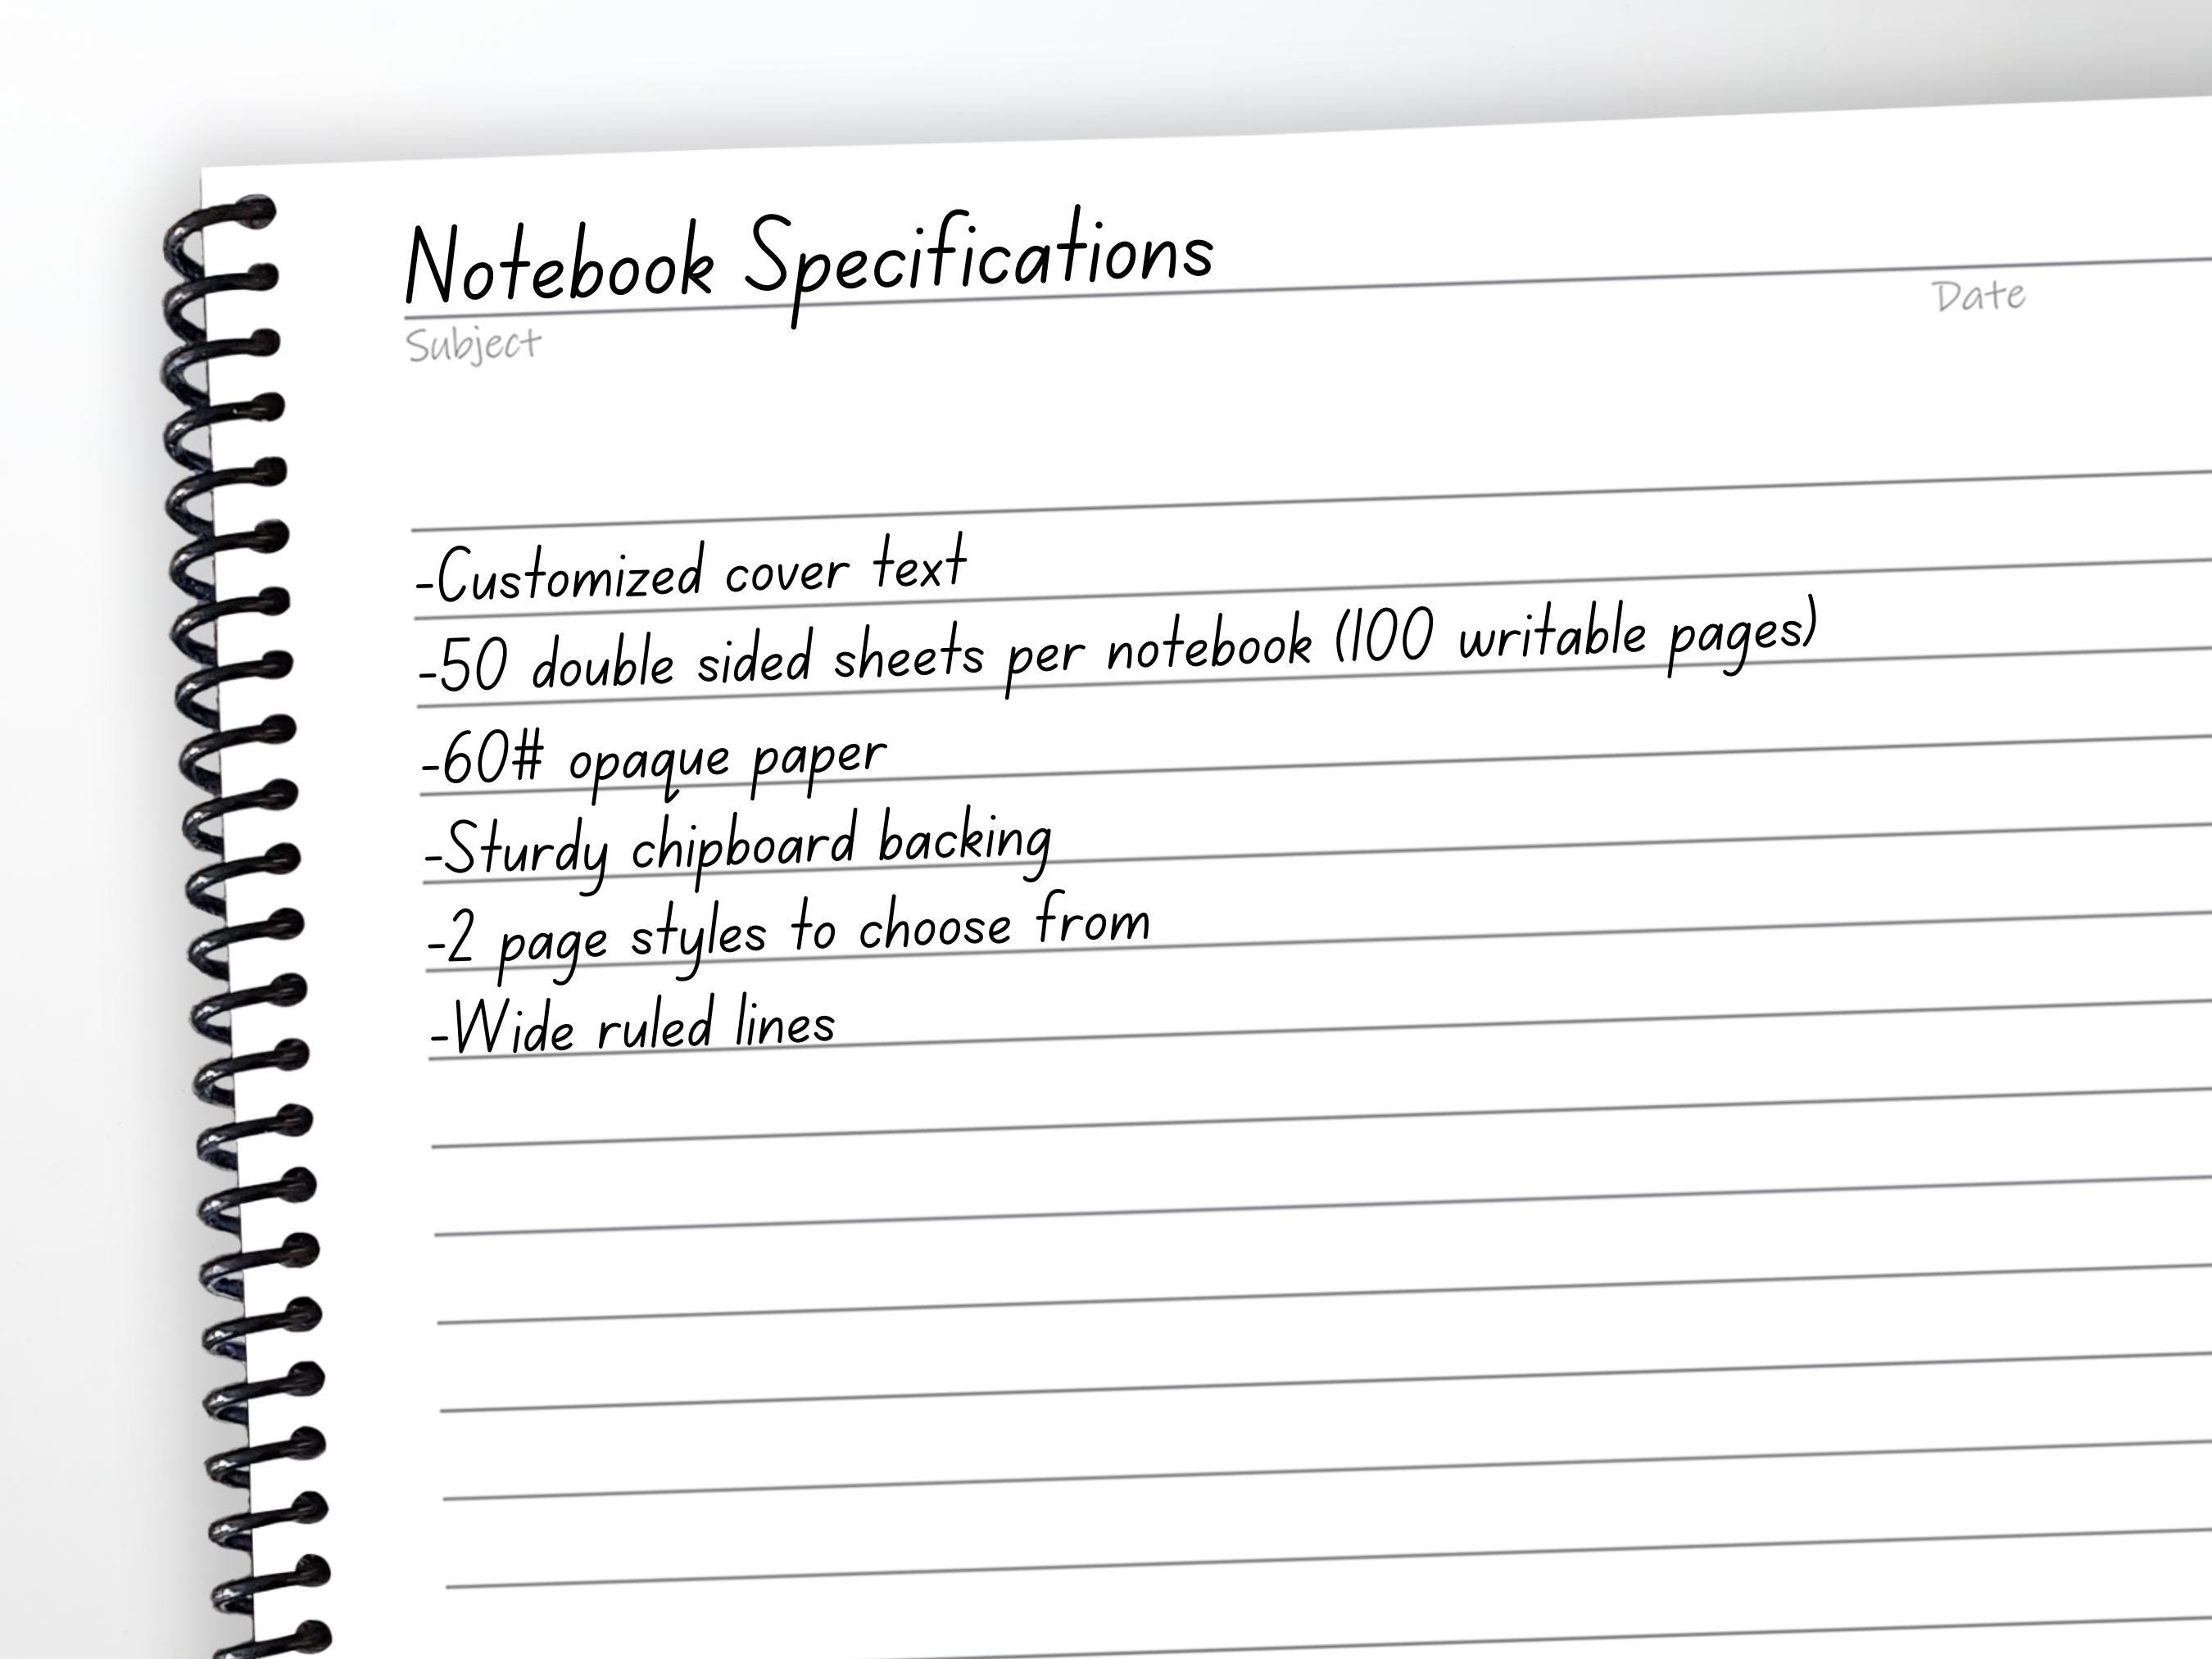 Notebook Specifications
Subject
Date
-Customized cover text
-50 double sided sheets per notebook (100 writable pages)
-60# opaque paper
-Sturdy chipboard backing
-2 page styles to choose from
-Wide ruled lines